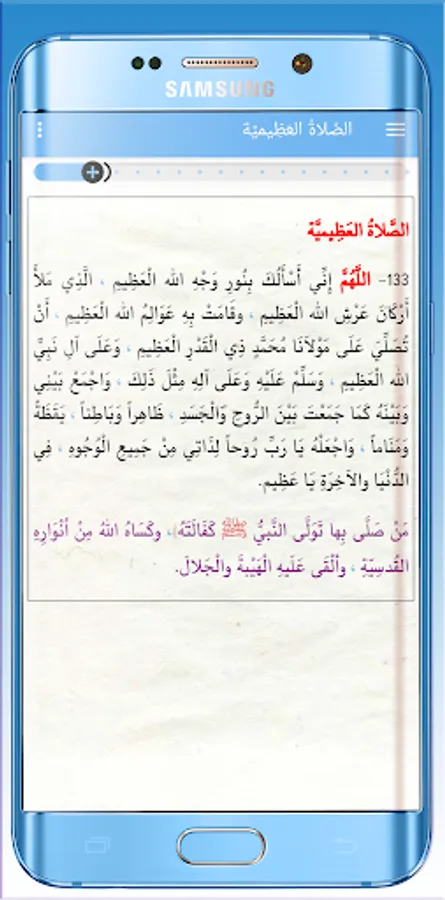 SAMSUNG
الصَّلاةُ العَظِيمِيَّة
الصَّلاةُ العَظِيمِيَّة
133- اللَّهُمَّ إِنِّي أَسْأَلُكَ بِنُورِ وَجْهِ الله الْعَظِيمِ ، الَّذِي مَلَأَ
أَرْكَانَ عَرْشِ الله الْعَظِيمِ ، وقَامَتْ بِهِ عَوَالِمُ الله الْعَظِيمِ ، أَنْ
تُصَلِّيَ عَلَى مَوْلَانَا مُحَمَّدٍ ذِي الْقَدْرِ الْعَظِيمِ ، وَعَلَى آلِ نَبِيِّ
الله الْعَظِيمِ ، وَسَلِّمْ عَلَيْهِ وَعَلَى آلِهِ مِثْلَ ذَلِكَ ، وَاجْمَعْ بَيْنِي
وَبَيْنَهُ كَمَا جَمَعْتَ بَيْنَ الرُّوحِ وَالْجَسَدِ ، ظَاهِراً وَبَاطِناً ، يَقَظَةً
وَمَنَاماً ، وَاجْعَلْهُ يَا رَبِّ رُوحاً لِذَاتِي مِنْ جَمِيعِ الْوُجُوهِ ، فِي
الدُّنْيَا وَالآخِرَةِ يَا عَظِيم.
مَنْ صَلَّى بِها تَوَلَّى النَّبِيُّ ﷺ كَفَالَتَهُ، وكَسَاهُ اللهُ مِنْ أَنْوَارِهِ
القُدسِيَّةِ ، وأَلْقَى عَلَيهِ الْهَيْبَةَ والْجَلالَ.